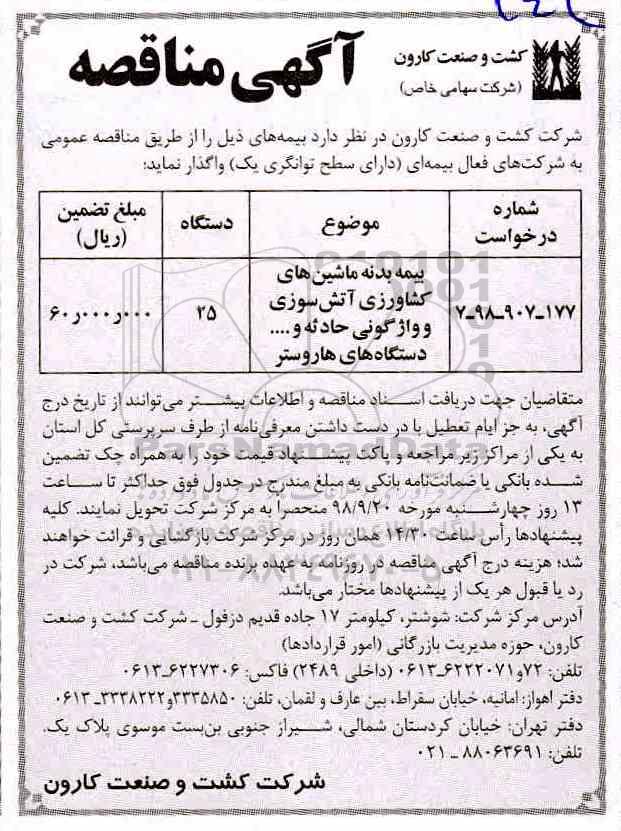 کشت و صنعت کارون
(شرکت سهامی خاص)
آگهی مناقصه
شرکت کشت و صنعت کارون در نظر دارد بیمه‌های ذیل را از طریق مناقصه عمومی
به شرکت‌های فعال بیمه‌ای (دارای سطح توانگری یک) واگذار نماید:
شماره درخواست
موضوع
دستگاه
مبلغ تضمین (ریال)
۷ـ۹۸ـ۹۰۷ـ۱۷۷
بیمه بدنه ماشین‌های
کشاورزی آتش‌سوزی
و واژگونی حادثه و ....
دستگاه‌های هاروستر
۲۵
۶۰ر۰۰۰ر۰۰۰
متقاضیان جهت دریافت اسناد مناقصه و اطلاعات بیشتر می‌توانند از تاریخ درج
آگهی، به جز ایام تعطیل با در دست داشتن معرفی‌نامه از طرف سرپرستی کل استان
به یکی از مراکز زیر مراجعه و پاکت پیشنهاد قیمت خود را به همراه چک تضمین
شده بانکی یا ضمانت‌نامه بانکی به مبلغ مندرج در جدول فوق حداکثر تا ساعت
۱۳ روز چهارشنبه مورخه ۹۸/۹/۲۰ منحصرا به مرکز شرکت تحویل نمایند. کلیه
پیشنهادها رأس ساعت ۱۴/۳۰ همان روز در مرکز شرکت بازگشایی و قرائت خواهند
شد؛ هزینه درج آگهی مناقصه در روزنامه به عهده برنده مناقصه می‌باشد، شرکت در
رد یا قبول هر یک از پیشنهادها مختار می‌باشد.
آدرس مرکز شرکت: شوشتر، کیلومتر ۱۷ جاده قدیم دزفول ـ شرکت کشت و صنعت
کارون، حوزه مدیریت بازرگانی (امور قراردادها)
تلفن: ۷۲و۶۲۲۲۰۷۱ـ۰۶۱۳ (داخلی ۲۴۸۹) فاکس: ۶۲۲۷۳۰۶ـ۰۶۱۳
دفتر اهواز: امانیه، خیابان سقراط، بین عارف و لقمان، تلفن: ۳۳۳۵۸۵۰و۳۳۳۸۲۲۲ـ ۰۶۱۳
دفتر تهران: خیابان کردستان شمالی، شیراز جنوبی بن‌بست موسوی پلاک یک.
تلفن: ۸۸۰۶۳۶۹۱ ـ ۰۲۱
شرکت کشت و صنعت کارون
ParsNamadData